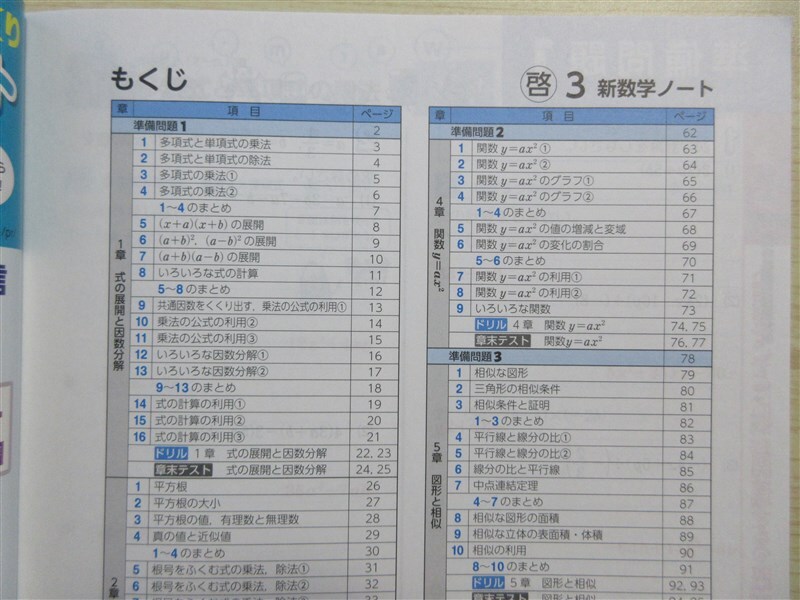 もくじ
啓 3 新数学ノート
章 項目 ページ
準備問題1 2
1章 式の展開と因数分解
1 多項式と単項式の乗法 3
2 多項式と単項式の除法 4
3 多項式の乗法① 5
4 多項式の乗法② 6
1〜4のまとめ 7
5 (x+a)(x+b)の展開 8
6 (a+b)², (a−b)²の展開 9
7 (a+b)(a−b)の展開 10
8 いろいろな式の計算 11
5〜8のまとめ 12
9 共通因数をくくり出す，乗法の公式の利用① 13
10 乗法の公式の利用② 14
11 乗法の公式の利用③ 15
12 いろいろな因数分解① 16
13 いろいろな因数分解② 17
9〜13のまとめ 18
14 式の計算の利用① 19
15 式の計算の利用② 20
16 式の計算の利用③ 21
ドリル 1章 式の展開と因数分解 22, 23
章末テスト 式の展開と因数分解 24, 25
2章
1 平方根 26
2 平方根の大小 27
3 平方根の値，有理数と無理数 28
4 真の値と近似値 29
1〜4のまとめ 30
5 根号をふくむ式の乗法，除法① 31
6 根号をふくむ式の乗法，除法② 32
章 項目 ページ
準備問題2 62
4章 関数 y=ax²
1 関数 y=ax² ① 63
2 関数 y=ax² ② 64
3 関数 y=ax² のグラフ① 65
4 関数 y=ax² のグラフ② 66
1〜4のまとめ 67
5 関数 y=ax² の値の増減と変域 68
6 関数 y=ax² の変化の割合 69
5〜6のまとめ 70
7 関数 y=ax² の利用① 71
8 関数 y=ax² の利用② 72
9 いろいろな関数 73
ドリル 4章 関数 y=ax² 74, 75
章末テスト 関数y=ax² 76, 77
準備問題3 78
5章 図形と相似
1 相似な図形 79
2 三角形の相似条件 80
3 相似条件と証明 81
1〜3のまとめ 82
4 平行線と線分の比① 83
5 平行線と線分の比② 84
6 線分の比と平行線 85
7 中点連結定理 86
4〜7のまとめ 87
8 相似な図形の面積 88
9 相似な立体の表面積・体積 89
10 相似の利用 90
8〜10のまとめ 91
ドリル 5章 図形と相似 92, 93